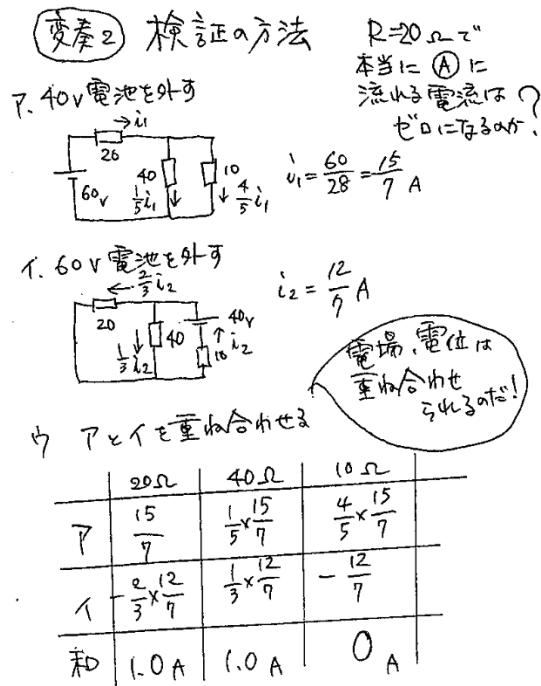 変奏2 検証の方法
R=20Ωで
本当に Ⓐ に
流れる電流は
ゼロになるのか?
ア. 40V電池を外す
→i₁
20
60V
40
10
1/5 i₁
4/5 i₁
i₁ = 60/28 = 15/7 A
イ. 60V電池を外す
← 2/3 i₂
20
40
40V
10
1/3 i₂
↑ i₂
i₂ = 12/7 A
電場、電位は
重ね合わせ
られるのだ!
ウ アとイを重ね合わせる
20Ω 40Ω 10Ω
ア 15/7 1/5×15/7 4/5×15/7
イ -2/3×12/7 1/3×12/7 -12/7
和 1.0A 1.0A 0A